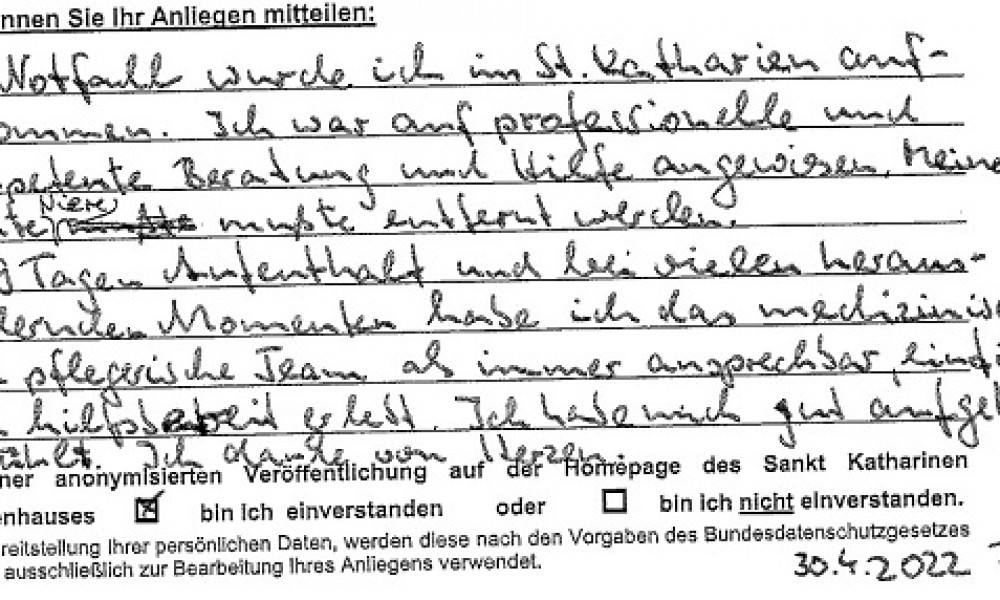 nnen Sie Ihr Anliegen mitteilen:
Notfall wurde ich im St. Katharien auf-
ommen. Ich war auf professionelle und
petente Beratung und Hilfe angewiesen. Meine
Niere
te mußte entfernt werden.
Tagen Aufenthalt und bei vielen heraus-
dernden Momenten habe ich das medizinisc
pflegerische Team als immer ansprechbar, einf
hilfsbereit erlebt. Ich habe mich gut aufgeh
ühlt. Ich danke von Herzen.
ner anonymisierten Veröffentlichung auf der Homepage des Sankt Katharinen
enhauses ☒ bin ich einverstanden oder ☐ bin ich nicht einverstanden.
reitstellung Ihrer persönlichen Daten, werden diese nach den Vorgaben des Bundesdatenschutzgesetzes
ausschließlich zur Bearbeitung Ihres Anliegens verwendet.
30.4.2022